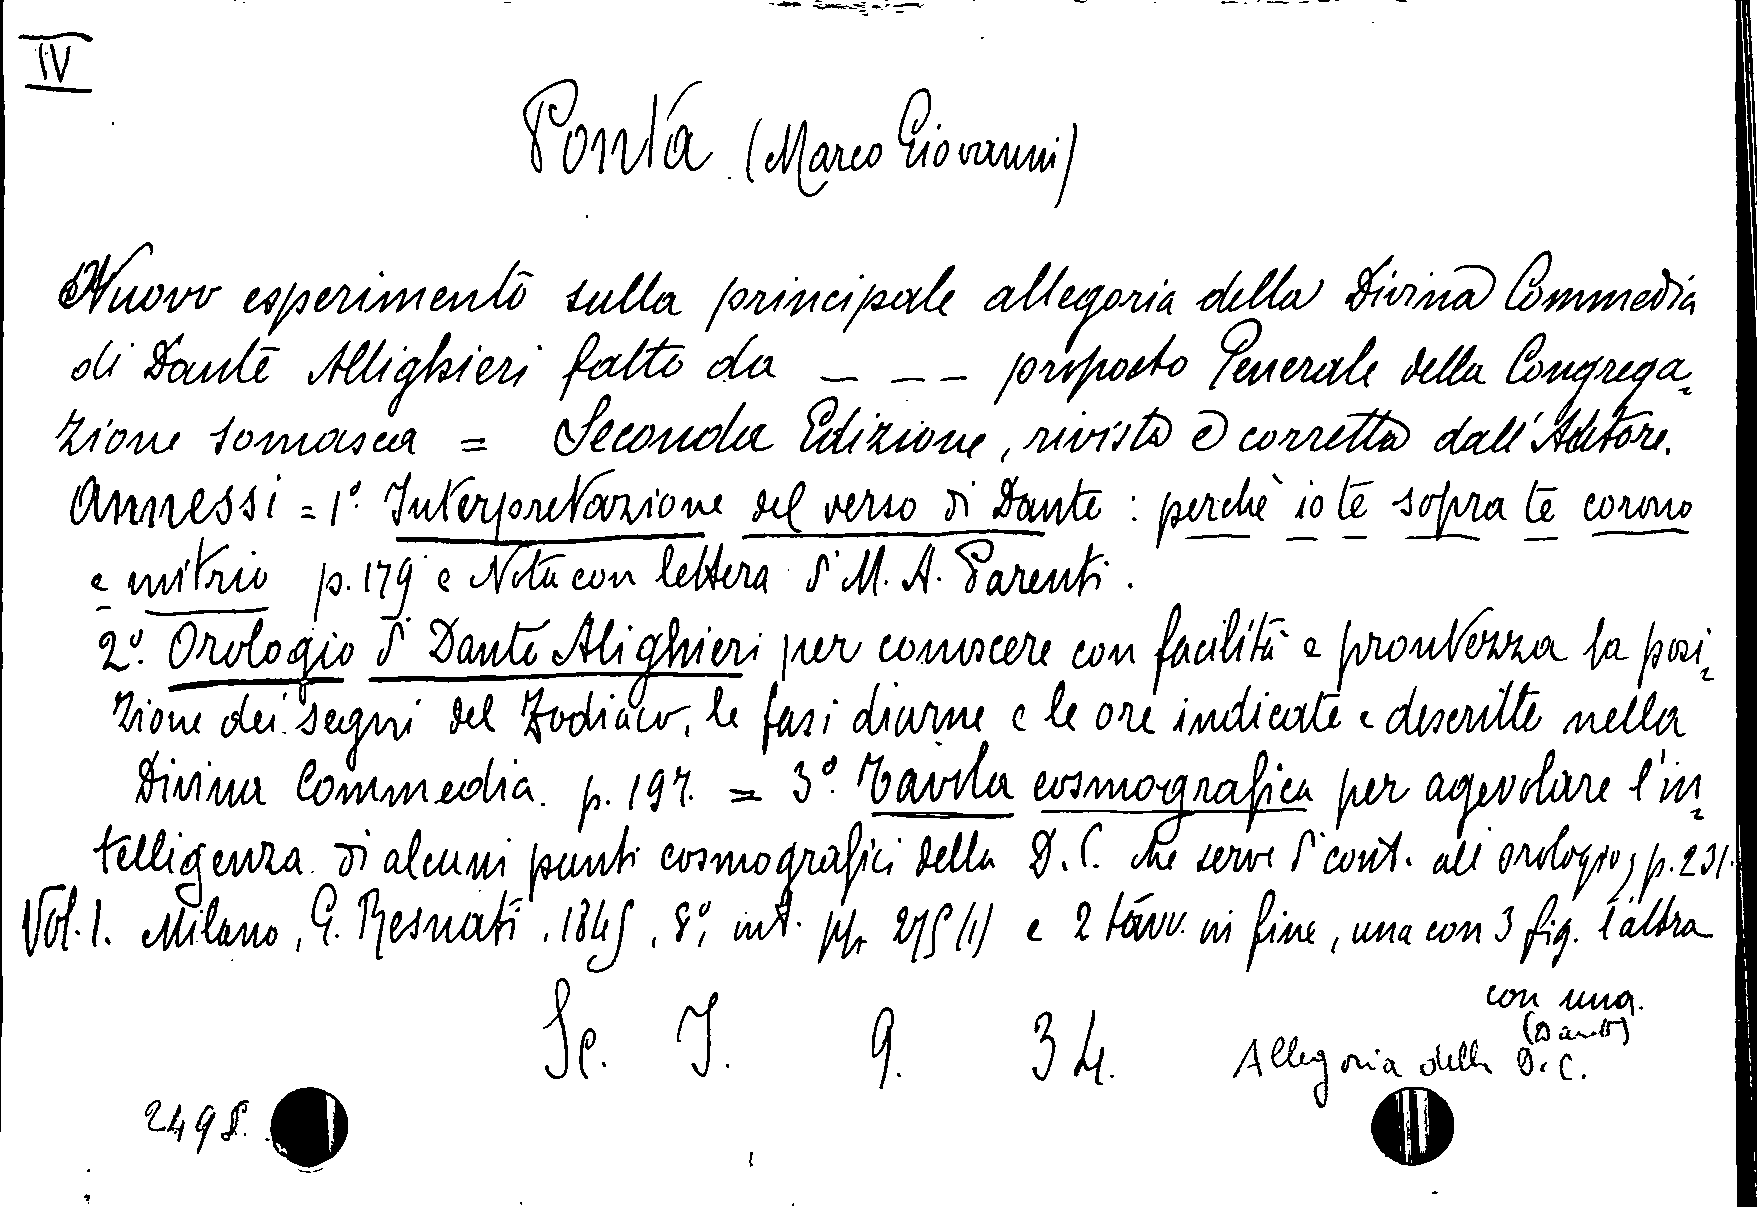 IV
Ponta (Marco Giovanni)
Nuovo esperimento sulla principale allegoria della Divina Commedia
di Dante Allighieri fatto da _ _ _ proposto Generale della Congrega-
zione somasca = Seconda Edizione, rivista e corretta dall'Autore.
Annessi = 1º. Interpretazione del verso di Dante : perchè io te sopra te corono
e mitrio p. 179 e Nota con lettera di M. A. Parenti.
2º. Orologio di Dante Alighieri per conoscere con facilità e prontezza la posi-
zione dei segni del Zodiaco, le fasi diurne e le ore indicate e descritte nella
Divina Commedia. p. 197. = 3º. Tavola cosmografica per agevolare l'in-
telligenza di alcuni punti cosmografici della D. C. che serve di cont. all'orologio, p. 231.
Vol. 1. Milano, G. Resnati, 1845, 8º, int. pp. 275 (1) e 2 tavv. in fine, una con 3 fig. l'altra
con una.
Sc. I. 9. 34.
Allegoria della D. C.
(Dante)
2498.